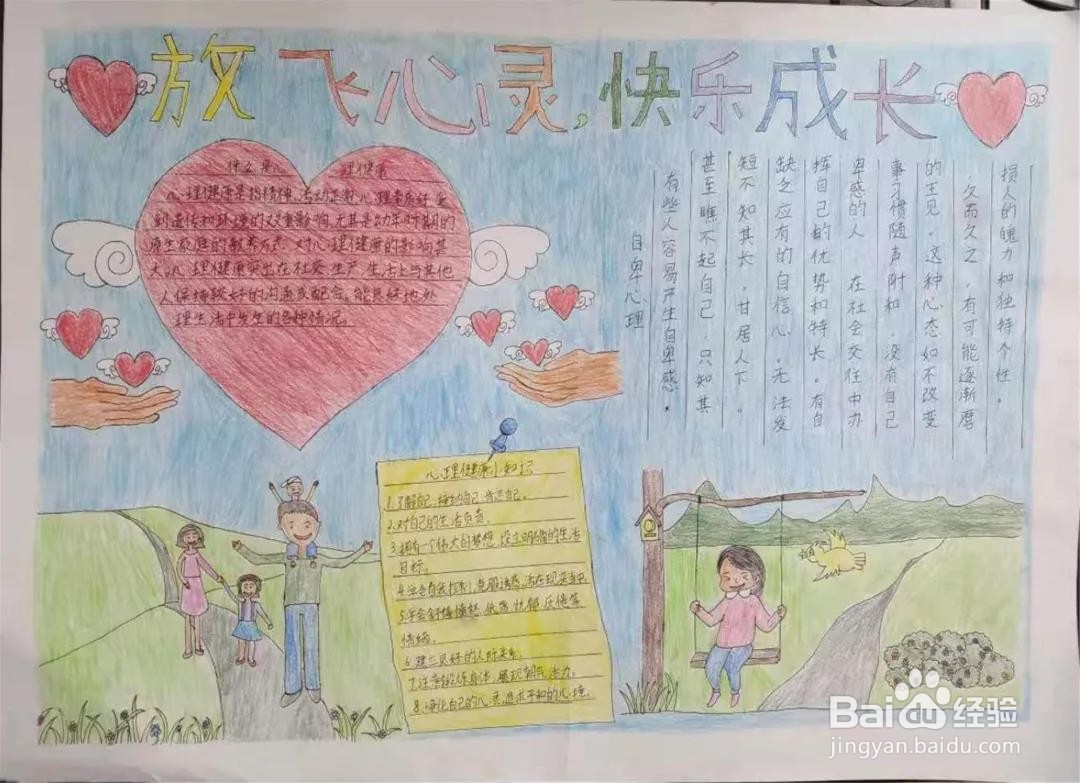 放飞心灵，快乐成长
什么是 理健康
心理健康是指精神、活动正常、心理素质好 受
到遗传和环境的双重影响，尤其是幼年时期的
原生家庭的教养方式，对心理健康的影响甚
大。心理健康突出在社交、生产、生活上与其他
人保持较好的沟通或配合，能良好地处
理生活中发生的各种情况。
自卑心理
有些人容易产生自卑感，
甚至瞧不起自己，只知其
短不知其长，甘居人下。
缺乏应有的自信心，无法发
挥自己的优势和特长。有自
卑感的人 在社会交往中办
事习惯随声附和，没有自己
的主见，这种心态如不改变
久而久之，有可能逐渐磨
损人的魄力和独特个性。
心理健康小知识
1.了解自己，接纳自己，肯定自己。
2.对自己的生活负责。
3.拥有一个伟大的梦想，设立明确的生活
目标。
4.学会自我控制，克服诱惑，活在现实当中
5.学会舒缓
情绪。
6.建立良好的人际关系。
7.注意锻炼身体，展现朝气活力。
8.净化自己的心灵，追求平和的心境。
Baidu经验
jingyan.baidu.com